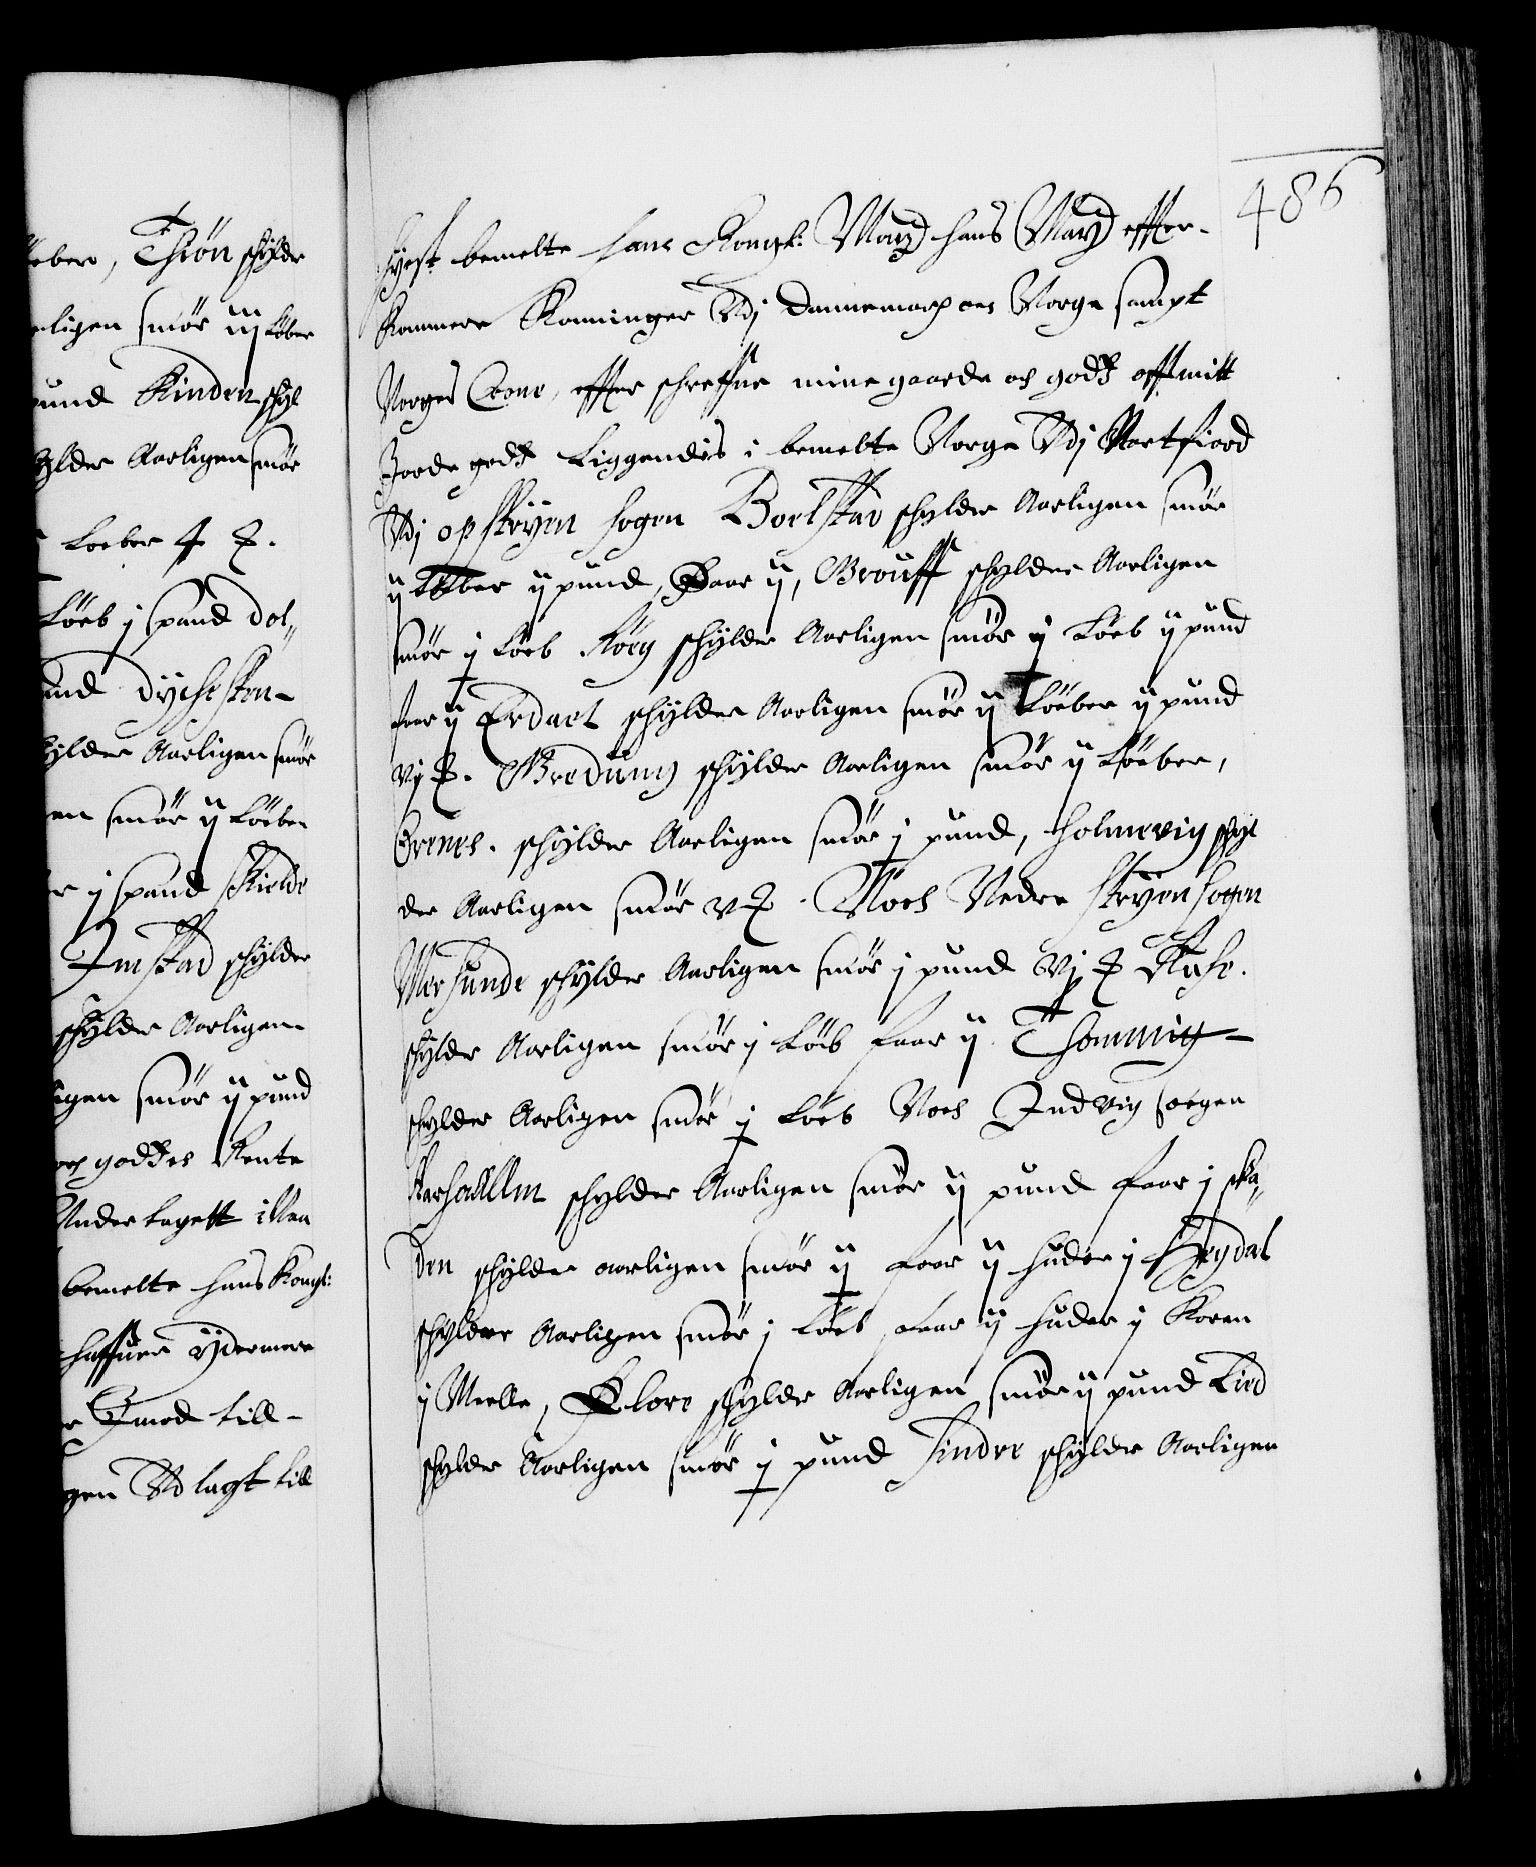 öber, Thiön schylder
rligen smör iij Löber
pund Kinden schyl
hylder Aarligen smör
Loeber 4 ℔.
Löeb j spand dol„
und dycheskon-
hylder Aarligen smör
en smör ij Löeber
r ij spand Skielde
Imstad schylder
schylder Aarligen
igen smör ij pund
och goddes Rente
Under lagett illan
bemelte hans Kongl:
haffuer ydermere
Imod till-
gen Udlagt till
486
hyest bemelte hans Kongl: Mayt hans Mayt effter-
kommere Konninger Udj Dannemarch och Norge sampt
Norges Crone, effter schreffne mine gaarde och godtz aff mitt
Jorde godtz Liggendis i bemelte Norge Udj Nortfiord
Udj opstryen sogen Boelstad schylder Aarligen smör
ij Löber ij pund, Faar ij, Brouff schylder Aarligen
smör j Löeb Rörg schylder Aarligen smör ij Löeb ij pund
faar ij Erdael schylder Aarligen smör ij Löeber ij pund
vj ℔. Bredung schylder Aarligen smör ij Löeber,
Grenes. schylder Aarligen smör j pund, Holmevig schyl
der Aarligen smör v ℔. Noch Nedre stryen sogen
Mersunde schylder Aarligen smör j pund vj ℔ Stafe.
schylder Aarligen smör j Löeb faar ij Thomuig-
schylder Aarligen smör j Löeb Noch Indvig soegen
Aarhallen schylder Aarligen smör ij pund faar j ska„
den schylder aarligen smör ij faar ij huder j Heydal
schylder Aarligen smör j Löeb, faar ij huder ij Koren
ij Meelle, Flore schylder Aarligen smör ij pund Lied
schylder Aarligen smör j pund Sindre schylder Aarligen